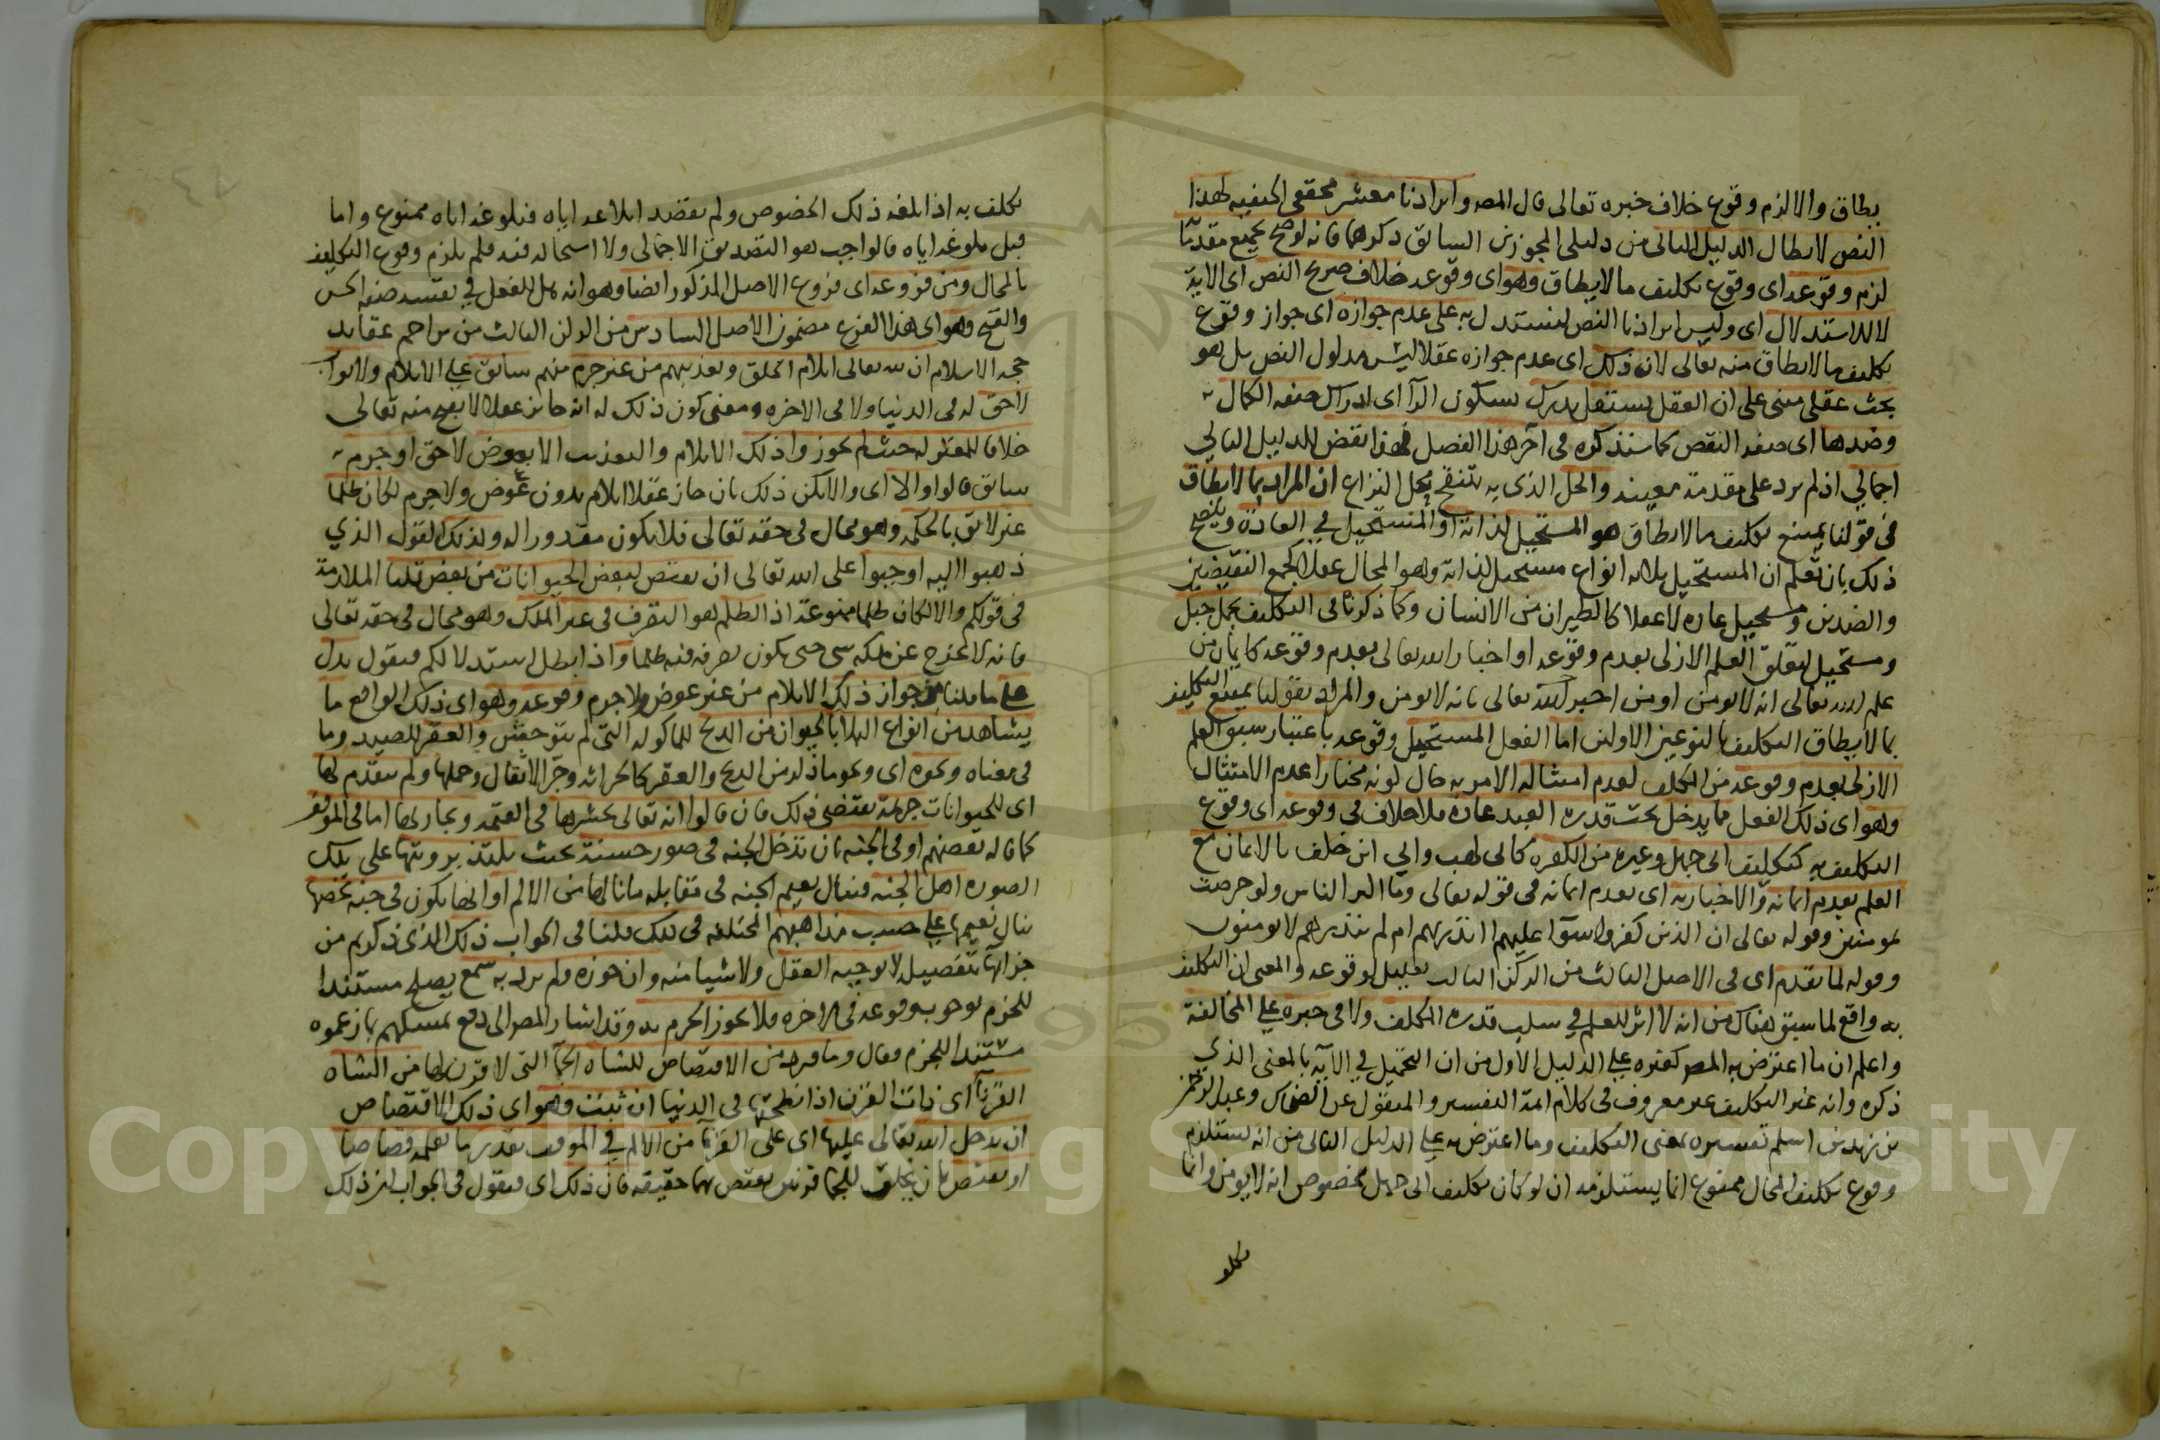 يطاق والا لزم وقوع خلاف خبره تعالى قال المصـ وايرادنا معشر محققي الحنفيه لهذا
النص لابطال الدليل الثاني من دليلي المجوزين السابق ذكرهما فانه لو صح بجميع مقدماته
لزم وقوعه اي وقوع تكليف ما لا يطاق وهو اي وقوعه خلاف صريح النص اي الاية
لا للاستدلال اي وليس ايرادنا النص لنستدل به على عدم جوازه اي جواز وقوع
تكليف ما لا يطاق منه تعالى لان ذلك اي عدم جوازه عقلا ليس مدلول النص بل هو
بحث عقلي مبني على ان العقل يستقل بدرك بسكون الرآ اي ادراك صفه الكمال
وضدها اي صفه النقص كما سنذكره في آخر هذا الفصل فهذا نقض للدليل الثاني
اجمالي اذ لم يرد على مقدمة معينه والحل الذي به يتنقح محل النزاع ان المراد بما لا يطاق
في قولنا يمتنع تكليف ما لا يطاق هو المستحيل لذاته او المستحيل في العادة ويتضح
ذلك بان تعلم ان المستحيل ثلاثه انواع مستحيل لذاته وهو المحال عقلا كجمع النقيضين
والضدين ومستحيل عاده لا عقلا كالطيران من الانسان وكما ذكرنا في التكليف بحمل جبل
ومستحيل لتعلق العلم الازلي بعدم وقوعه او اخبار الله تعالى بعدم وقوعه كايمان من
علم الله تعالى انه لا يومن او من اخبر الله تعالى بانه لا يومن والمراد بقولنا يمتنع التكليف
بما لا يطاق التكليف بالنوعين الاولين اما الفعل المستحيل وقوعه باعتبار سبق العلم
الازلي بعدم وقوعه من المكلف لعدم امتثاله الامر به حال كونه مختارا عدم الامتثال
وهو اي ذلك الفعل مما يدخل تحت قدرة العبد عادة فلا خلاف في وقوعه اي وقوع
التكليف به كتكليف ابي جهل وغيره من الكفره كابي لهب وابي ابن خلف بالايمان مع
العلم بعدم ايمانه والاخبار به اي بعدم ايمانه في قوله تعالى وما اكثر الناس ولو حرصت
بمومنين وقوله تعالى ان الذين كفروا سوآ عليهم اانذرتهم ام لم تنذرهم لا يومنون
وقوله لما تقدم اي في الاصل الثالث من الركن الثالث تعليل لوقوعه والمعنى ان التكليف
به واقع لما سبق هناك من انه لا اثر للعلم في سلب قدرة المكلف ولا في جبره علي المخالفة
واعلم ان ما اعترض به المصـ كغيره علي الدليل الاول من ان التحميل في الآية بالمعنى الذي
ذكره وانه غير التكليف غير معروف في كلام ائمة التفسير والمنقول عن الضحاك وعبد الرحمن
بن زيد بن اسلم تفسيره بمعنى التكليف وما اعترض به علي الدليل الثاني من انه يستلزم
وقوع تكليف المحال ممنوع انما يستلزمه ان لو كان تكليف ابي جهل بخصوص انه لا يومن وانما
تكلف
تكلف به اذا بلغه ذلك الخصوص ولم يقصد ابلاغه اياه فبلوغه اياه ممنوع واما
قبل بلوغه اياه فالواجب هو التصديق الاجمالي ولا استحالة فيه فلم يلزم وقوع التكليف
بالمحال ومن فروعه اي فروع الاصل المذكور ايضا وهو انه هل للفعل في نفسه صفه الحسن
والقبح وهو اي هذا الفرع مضمون الاصل السادس من الركن الثالث من تراجم عقايد
حجه الاسلام ان لله تعالى ايلام الخلق وتعذيبهم من غير جرم منهم سابق علي الايلام ولا ثواب
لاحق له في الدنيا ولا في الاخره ومعنى كون ذلك له انه جايز عقلا لا يقبح منه تعالى
خلافا للمعتزله حيث لم يجوزوا ذلك الايلام والتعذيب الا بعوض لاحق او جرم
سابق قالوا والا اي والا يكن ذلك بان جاز عقلا ايلام بدون عوض ولا جرم لكان ظلما
غير لائق بالحكمه وهو محال في حقه تعالى فلا يكون مقدورا له ولذلك القول الذي
ذهبوا اليه اوجبوا على الله تعالى ان يقتص لبعض الحيوانات من بعض قلنا الملازمة
في قولكم والا لكان ظلما ممنوعة اذ الظلم هو التصرف في غير الملك وهو محال في حقه تعالى
فانه لا يخرج عن ملكه شي حتى يكون تصرفه فيه ظلما واذا بطل استدلالكم فنقول يدل
علي ما قلنا من جواز ذلك الايلام من غير عوض ولا جرم وقوعه وهو اي ذلك الواقع ما
يشاهد من انواع البلايا بالحيوان من الذبح للماكولة التي لم تتوحش والعقر للصيد وما
في معناه ونحوه اي ونحو ما ذكر من الذبح والعقر كالحراثه وجر الاثقال وحملها ولم يتقدم لها
اي للحيوانات جريمة تقتضي ذلك فان قالوا انه تعالى يحشرها في القيمة ويجازيها اما في الموقف
كما قاله بعضهم او في الجنه بان تدخل الجنه في صور حسنة بحيث يلتذ برويتها على تلك
الصوره اهل الجنه فتنال نعيم الجنه في مقابلة ما نالها من الالم او انها تكون في جنة تخصها
تنال نعيمها علي حسب مذاهبهم المختلفه في ذلك قلنا في الجواب ذلك الذي ذكرتم من
جزائها بتفصيله لا يوجبه العقل ولا شيا منه وان جوزه ولم يرد به سمع يصلح مستندا
للجزم بوجوب وقوعه في الاخره فلا يجوز الجزم به وقد اشار المصـ الى دفع تمسكهم بما زعموه
مستندا للجزم فقال وما ورد من الاقتصاص للشاه الجمآ التي لا قرن لها من الشاه
القرنآ اي ذات القرن اذا نطحتها في الدنيا ان ثبت وهو اي ذلك الاقتصاص
ان يدخل الله تعالى عليها اي على القرنآ من الالم في الموقف بقدر ما يعلمه قصاصا
او يقتص بان يخلق للجما قرنين يقتص بهما حقيقه فان ذلك اي فنقول في الجواب ان ذلك